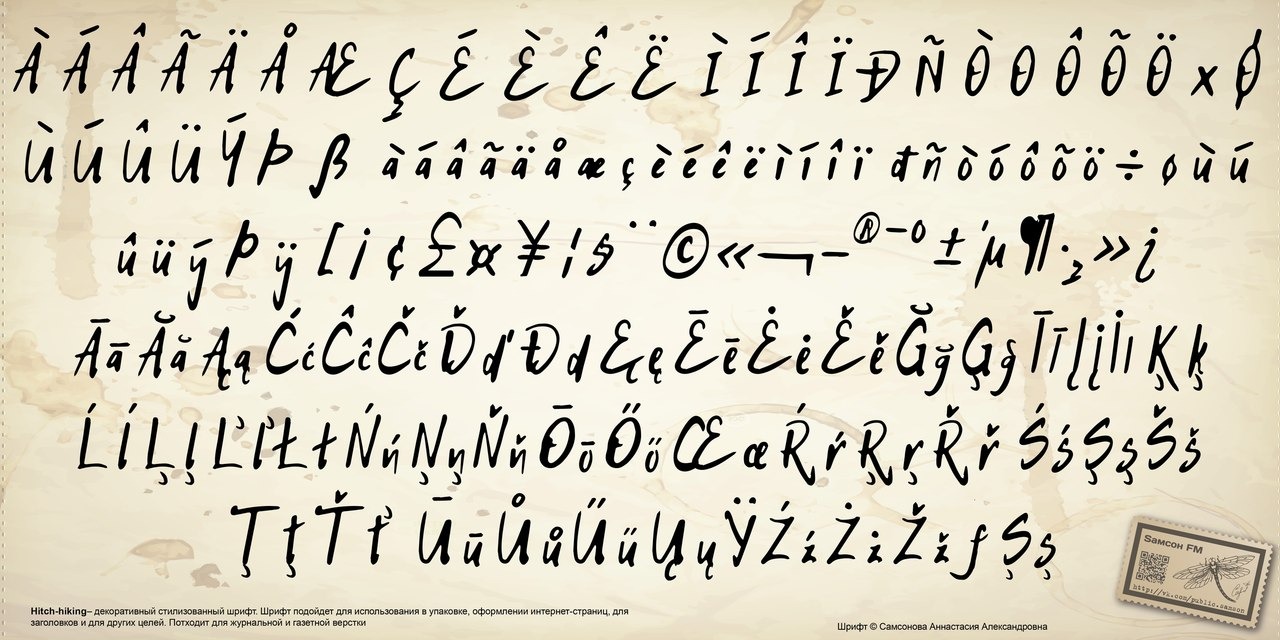 À Á Â Ã Ä Å Æ Ç É È Ê Ë Ì Í Î Ï Ð Ñ Ò Ó Ô Õ Ö × Ø
Ù Ú Û Ü Ý Þ ß à á â ã ä å æ ç è é ê ë ì í î ï đ ñ ò ó ô õ ö ÷ ø ù ú
û ü ý Þ ÿ [ ¡ ¢ £ ¤ ¥ ¦ § ¨ © « ¬ – ® – ° ± ´ µ ¶ · ¸ » ¿
Ā ā Ă ă Ą ą Ć ć Ĉ ĉ Č č Ď ď Đ d Ę ę Ē ē Ė ė Ě ě Ğ ğ Ģ ģ Ī ī Į į İ ı Ķ ķ
Ĺ ĺ Ļ ļ Ľ ľ Ł ł Ń ń Ņ ņ Ň ň Ō ō Ő ő Œ œ Ŕ ŕ Ŗ ŗ Ř ř Ś ś Ş ş Š š
Ţ ţ Ť ť Ū ū Ů ů Ű ű Ų ų Ÿ Ź ź Ż ż Ž ž ƒ Ș ș
Samсон FM
http://vk.com/public.samson
Hitch-hiking– декоративный стилизованный шрифт. Шрифт подойдет для использования в упаковке, оформлении интернет-страниц, для
заголовков и для других целей. Потходит для журнальной и газетной верстки
Шрифт © Самсонова Аннастасия Александровна